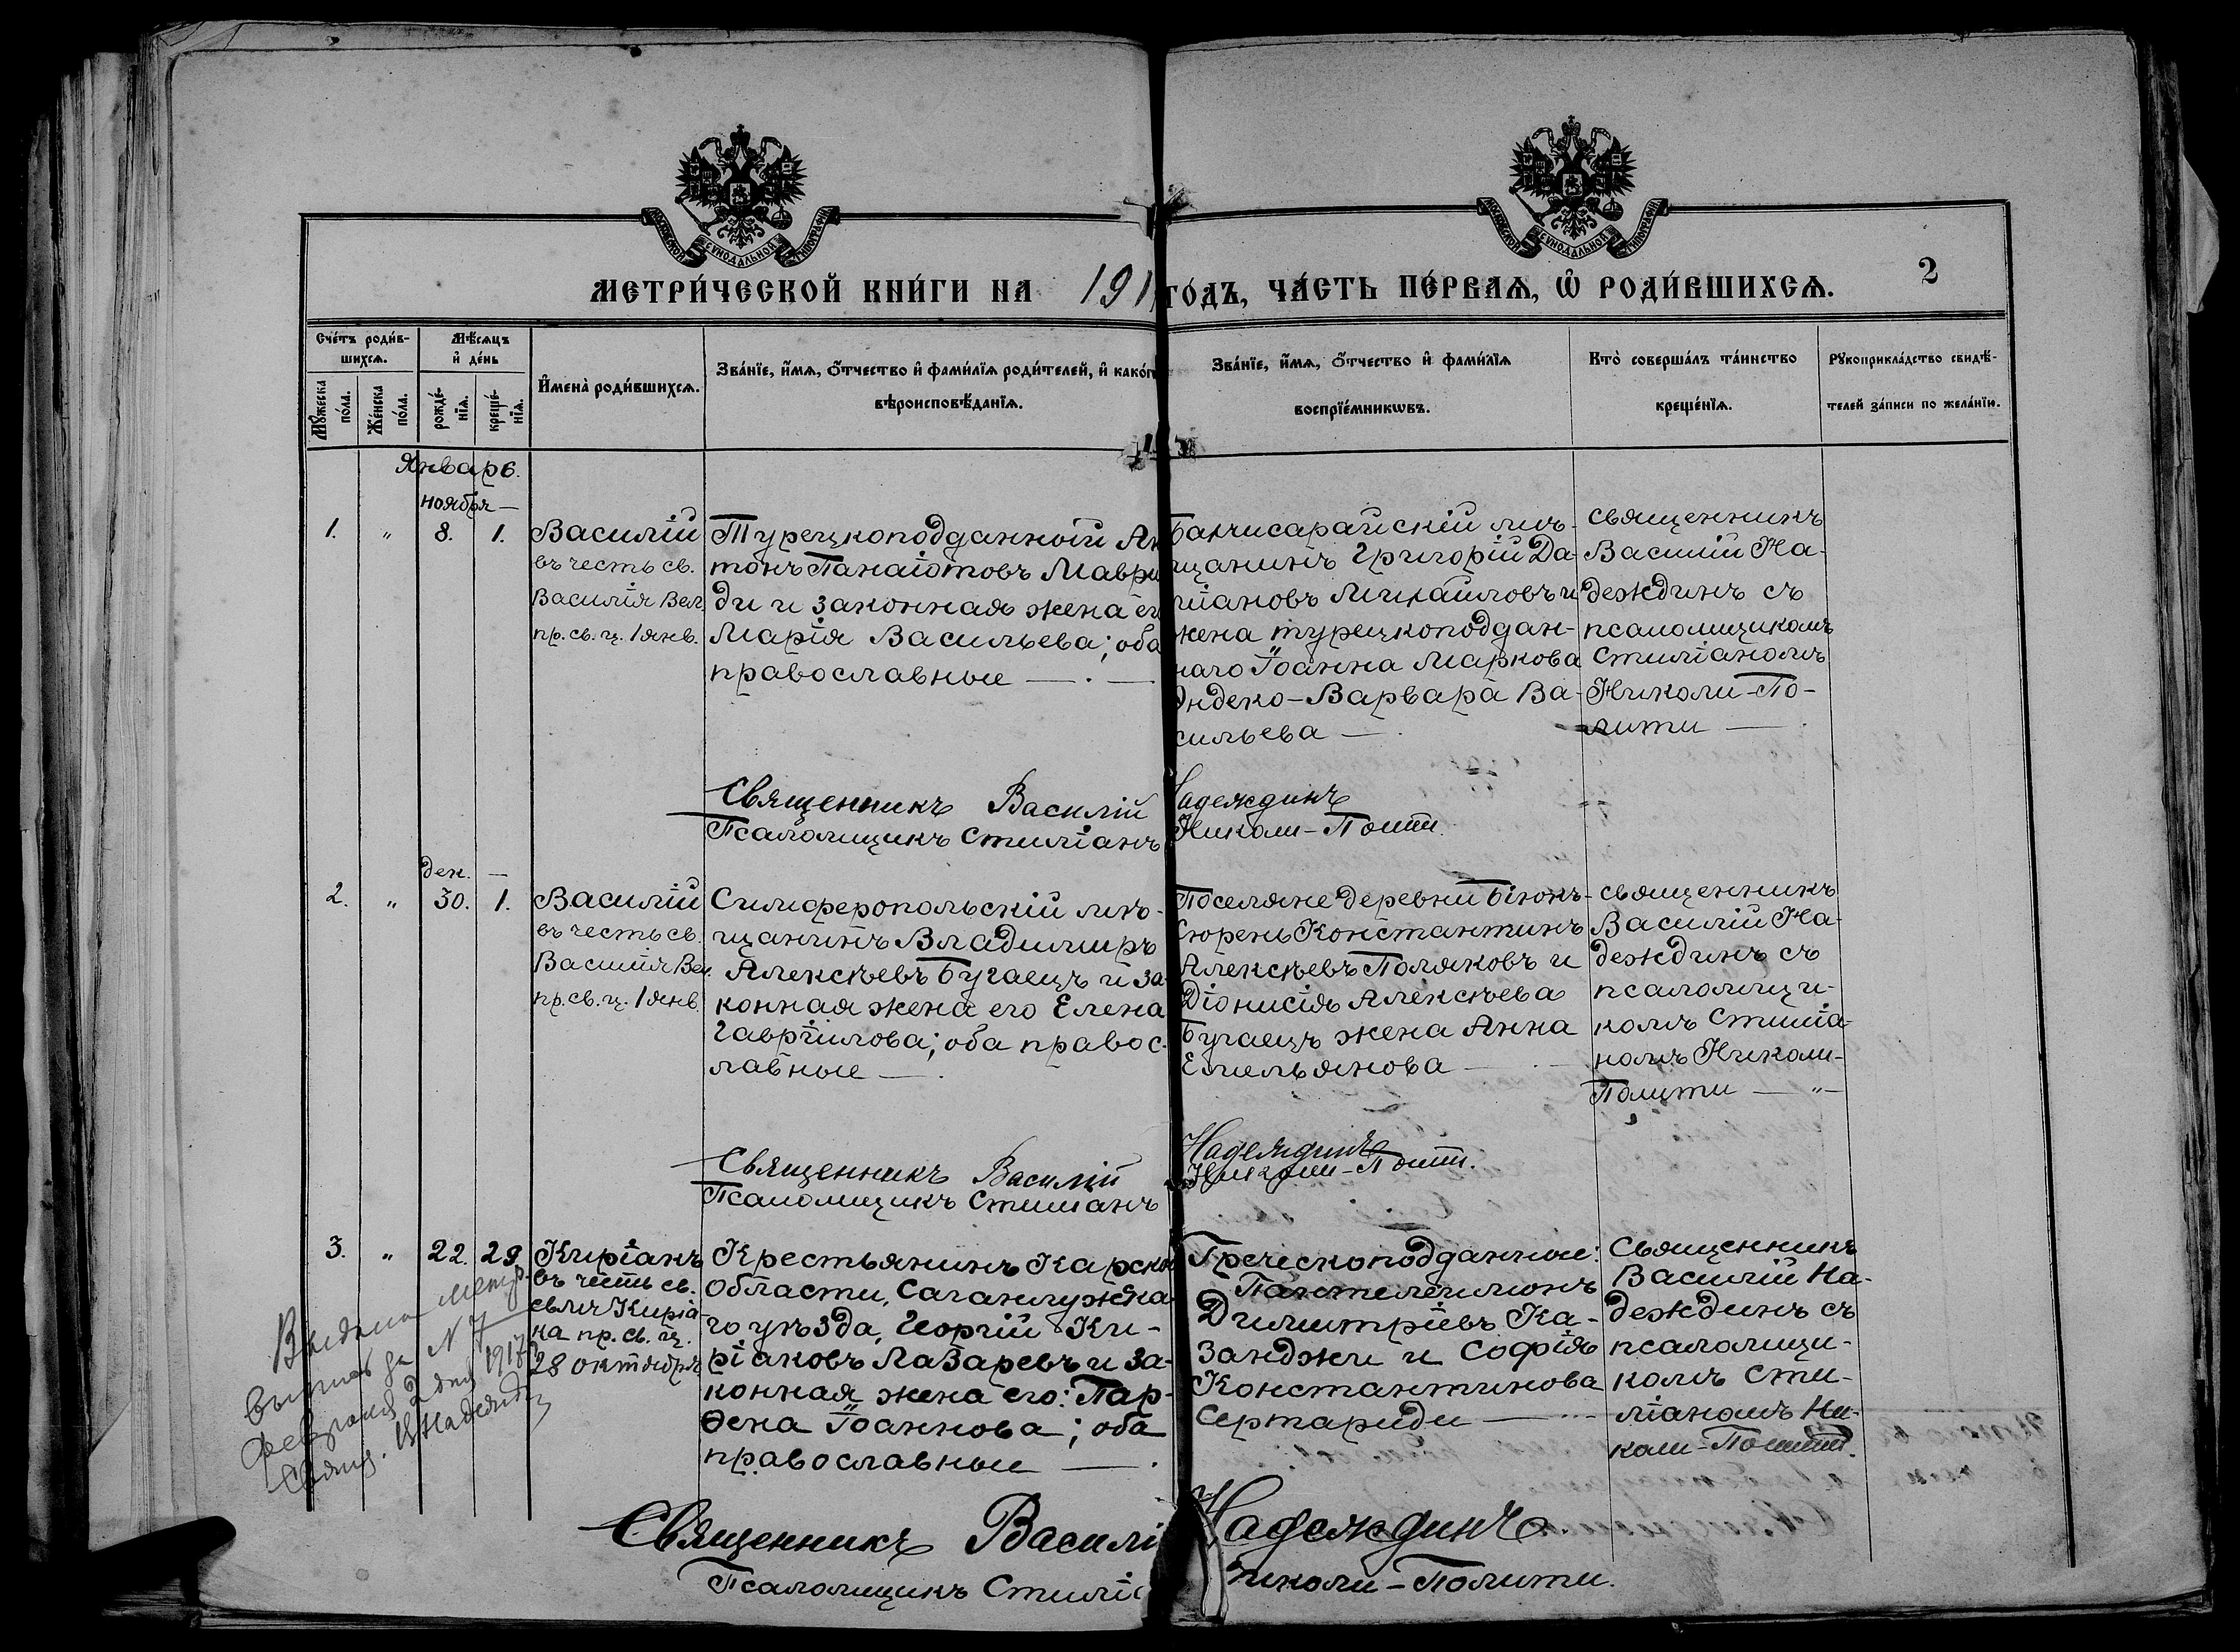 МОСКОВСКОЙ СѴНОДАЛЬНОЙ ТИПОГРАФІИ
МОСКОВСКОЙ СѴНОДАЛЬНОЙ ТИПОГРАФІИ
МЕТРИ́ЧЕСКОЙ КНИ́ГИ НА 191
ГО́ДЪ, ЧА́СТЬ ПЕ́РВАѦ, Ѡ҆ РОДИ́ВШИХСѦ.
2
Сче́тъ роди́в-
шихсѧ.
Мꙋжеска
по́ла.
Же́нска
по́ла.
Мѣ́сѧцъ
и҆ де́нь
рожде́-
нїѧ.
креще́-
нїѧ.
И҆мена̀ роди́вшихсѧ.
Зва́нїе, и҆́мѧ, ѻ҆́тчество и҆ фами́лїѧ роди́телей, и҆ како́г
вѣроисповѣ́данїѧ.
Зва́нїе, и҆́мѧ, ѻ҆́тчество и҆ фами́лїѧ
воспрїе́мникѡвъ.
Кто̀ соверша́лъ та́инство
креще́нїѧ.
Рꙋкоприкла́дство свидѣ́-
телей за́писи по жела́нїю.
Январь.
ноября —
1. " 8. 1.
Василій
въ честь св.
Василія Вел.
пр. св. ц. 1 янв.
Турецкоподданный Ан
тонъ Панаіотовъ Маври
ди и законная жена ег
Марія Васильева; оба
православные — . —
Бахчисарайскій мѣ-
щанинъ Григорій Да-
міановъ Михайловъ и
жена турецкоподдан-
наго Іоанна Маркова
Индеко - Варвара Ва-
сильева — .
священникъ
Василій На-
деждинъ съ
псаломщикомъ
Стиліаномъ
Николи - По-
лити — .
Священникъ Василій Надеждинъ
Псаломщикъ Стиліанъ Николи - Полити.
дек. —
2. " 30. 1.
Василій
въ честь св.
Василія Вел.
пр. св. ц. 1 янв.
Симферопольскій мѣ-
щанинъ Владиміръ
Алексѣевъ Бугаецъ и за-
конная жена его Елена
Гавріилова; оба правос-
лавные — .
Поселяне деревни Біюкъ-
Сюрень Константинъ
Алексѣевъ Поляковъ и
Діонисія Алексѣева
Бугаецъ жена Анна
Емельянова — . —
священникъ
Василій На-
деждинъ съ
псаломщи-
комъ Стиліа-
номъ Николи-
Полити — " —
Священникъ Василій Надеждинъ
Псаломщикъ Стиліанъ Николи - Полити.
3. " 22. 29.
Киріакъ
въ честь св.
свмч Киріа-
ка пр. св. ц.
28 октября
Крестьянинъ Карской
области, Саганлугска-
го уѣзда, Георгій Ки-
ріаковъ Лазаревъ и за-
конная жена его: Пар-
ѳена Іоаннова; оба
православные — .
Греческоподданные:
Пантелеимонъ
Димитріевъ Ка-
занджи и Софія
Константинова
Сертариди — . —
Священникъ
Василій На-
деждинъ съ
псаломщи-
комъ Сти-
ліаномъ Ни-
коли - Полити.
Выдана метр.
выпись за № 7
февраля 2 дня 1917
Свящ. В Надеждин
Священникъ Василі Надеждинъ
Псаломщикъ Стилі николи - Полити.